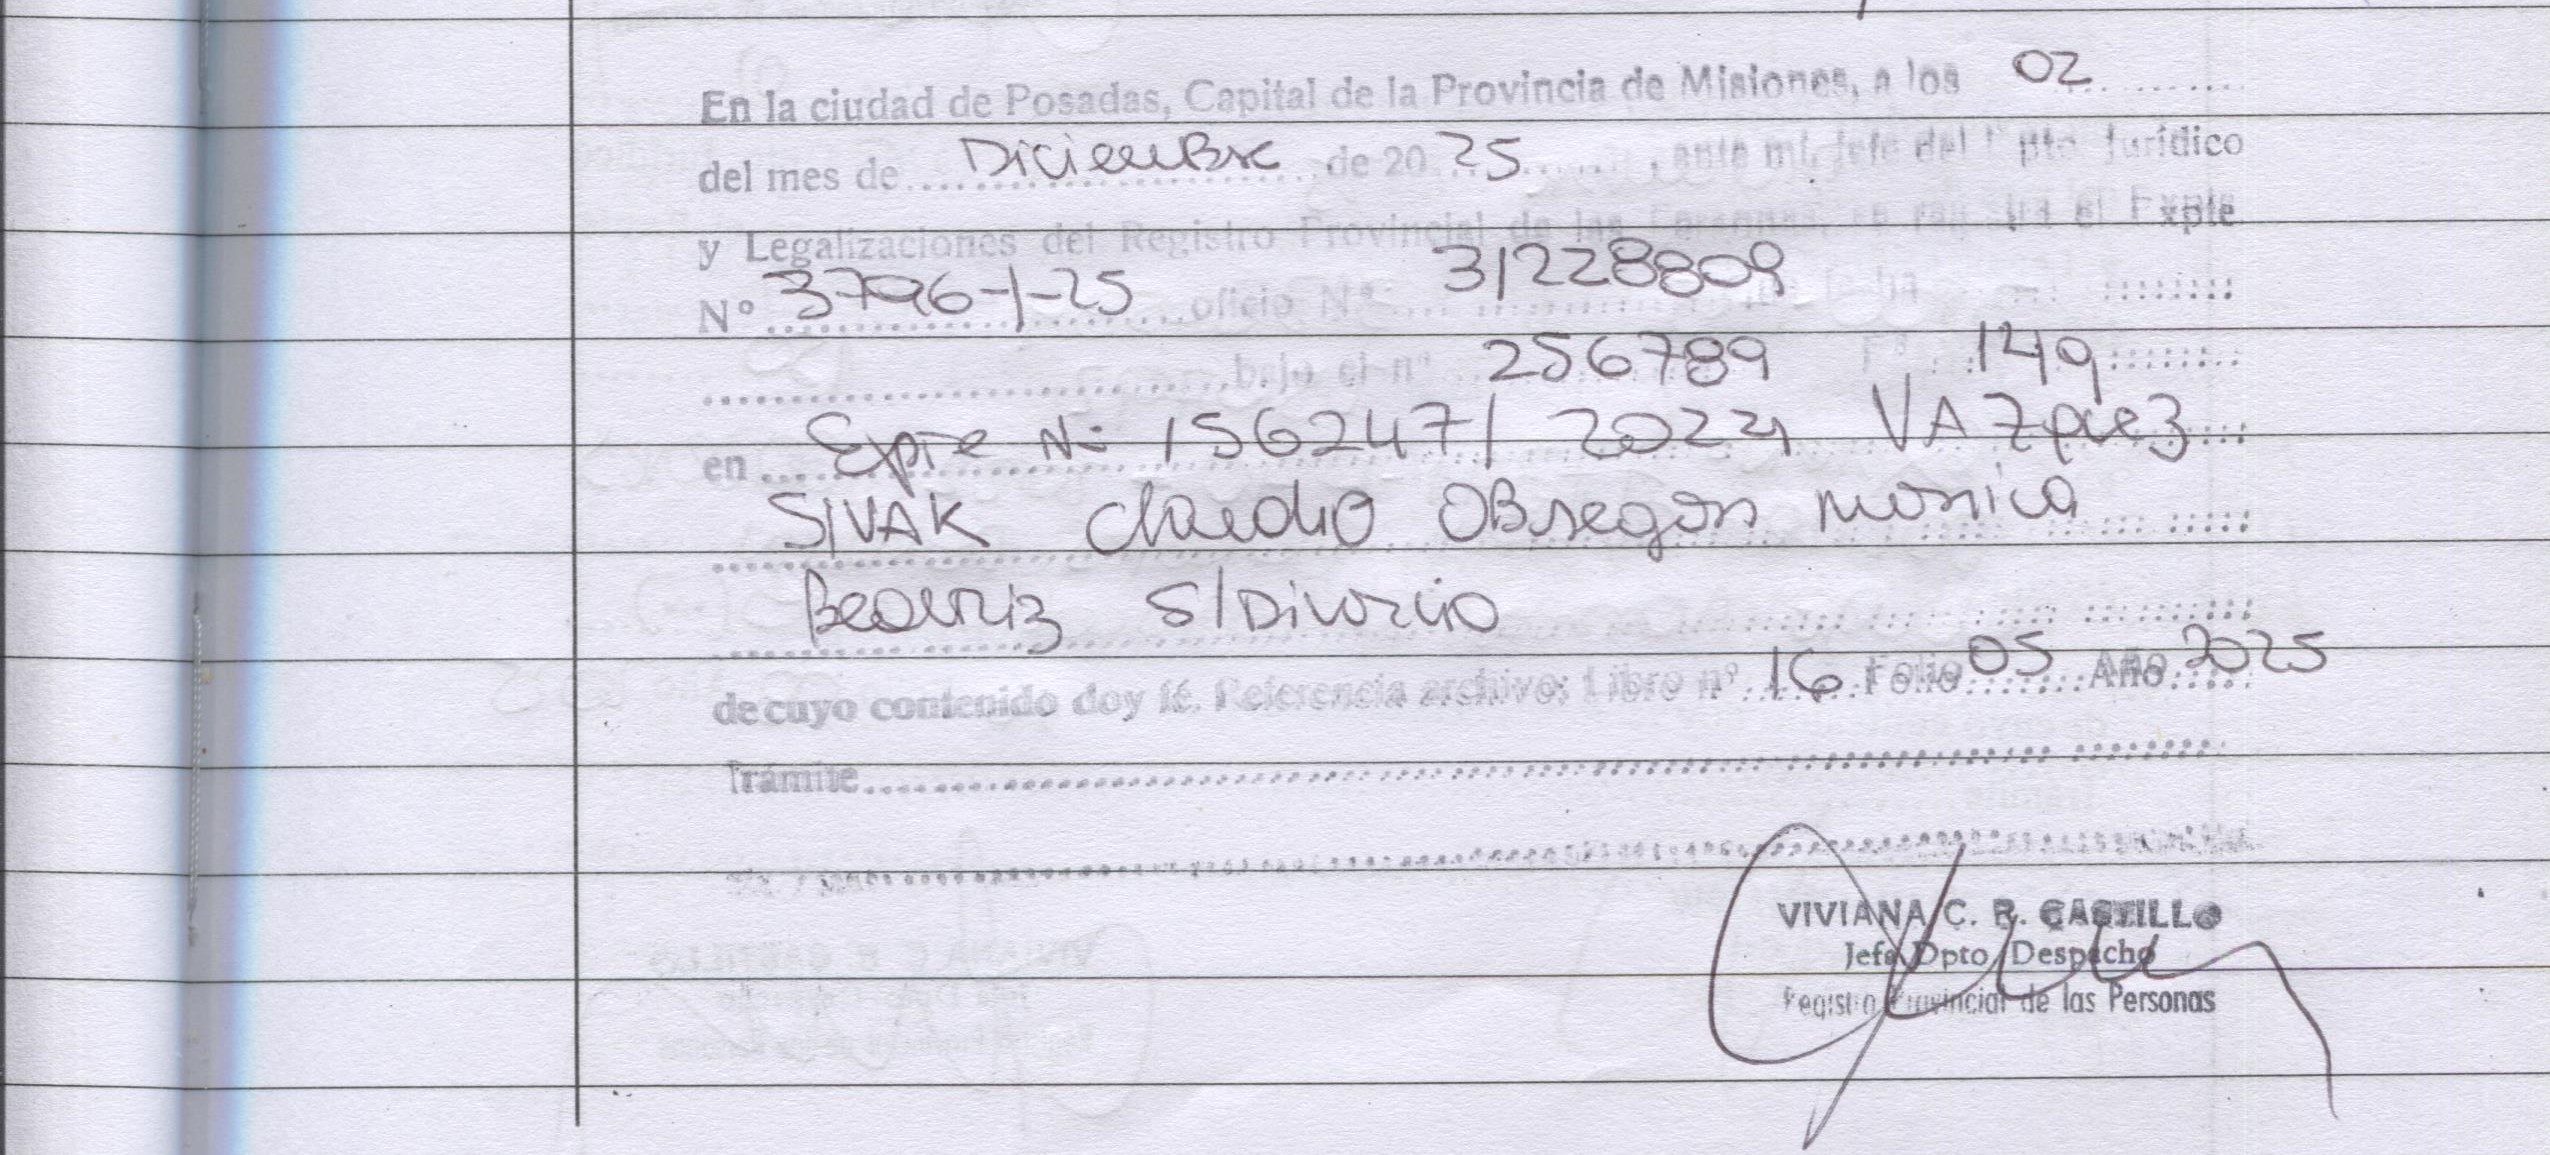 En la ciudad de Posadas, Capital de la Provincia de Misiones, a los 02
del mes de Diciembre de 20 25, ante mi, Jefe del Dpto Jurídico
y Legalizaciones del Registro Provincial de las Personas, se registra el Expte
Nº 3796-1-25 oficio Nº 31228809 de fecha
bajo el nº 256789 Fº 149
en Expte Nº 156247/2024 VAZquez
SIVAK Claudio OBregon monica
Beatriz S/Divorcio
de cuyo contenido doy fé. Referencia archivo: Libro nº 16 Folio 05 Año 2025
Trámite
VIVIANA C. R. CASTILLO
Jefa Dpto Despacho
Registro Provincial de las Personas